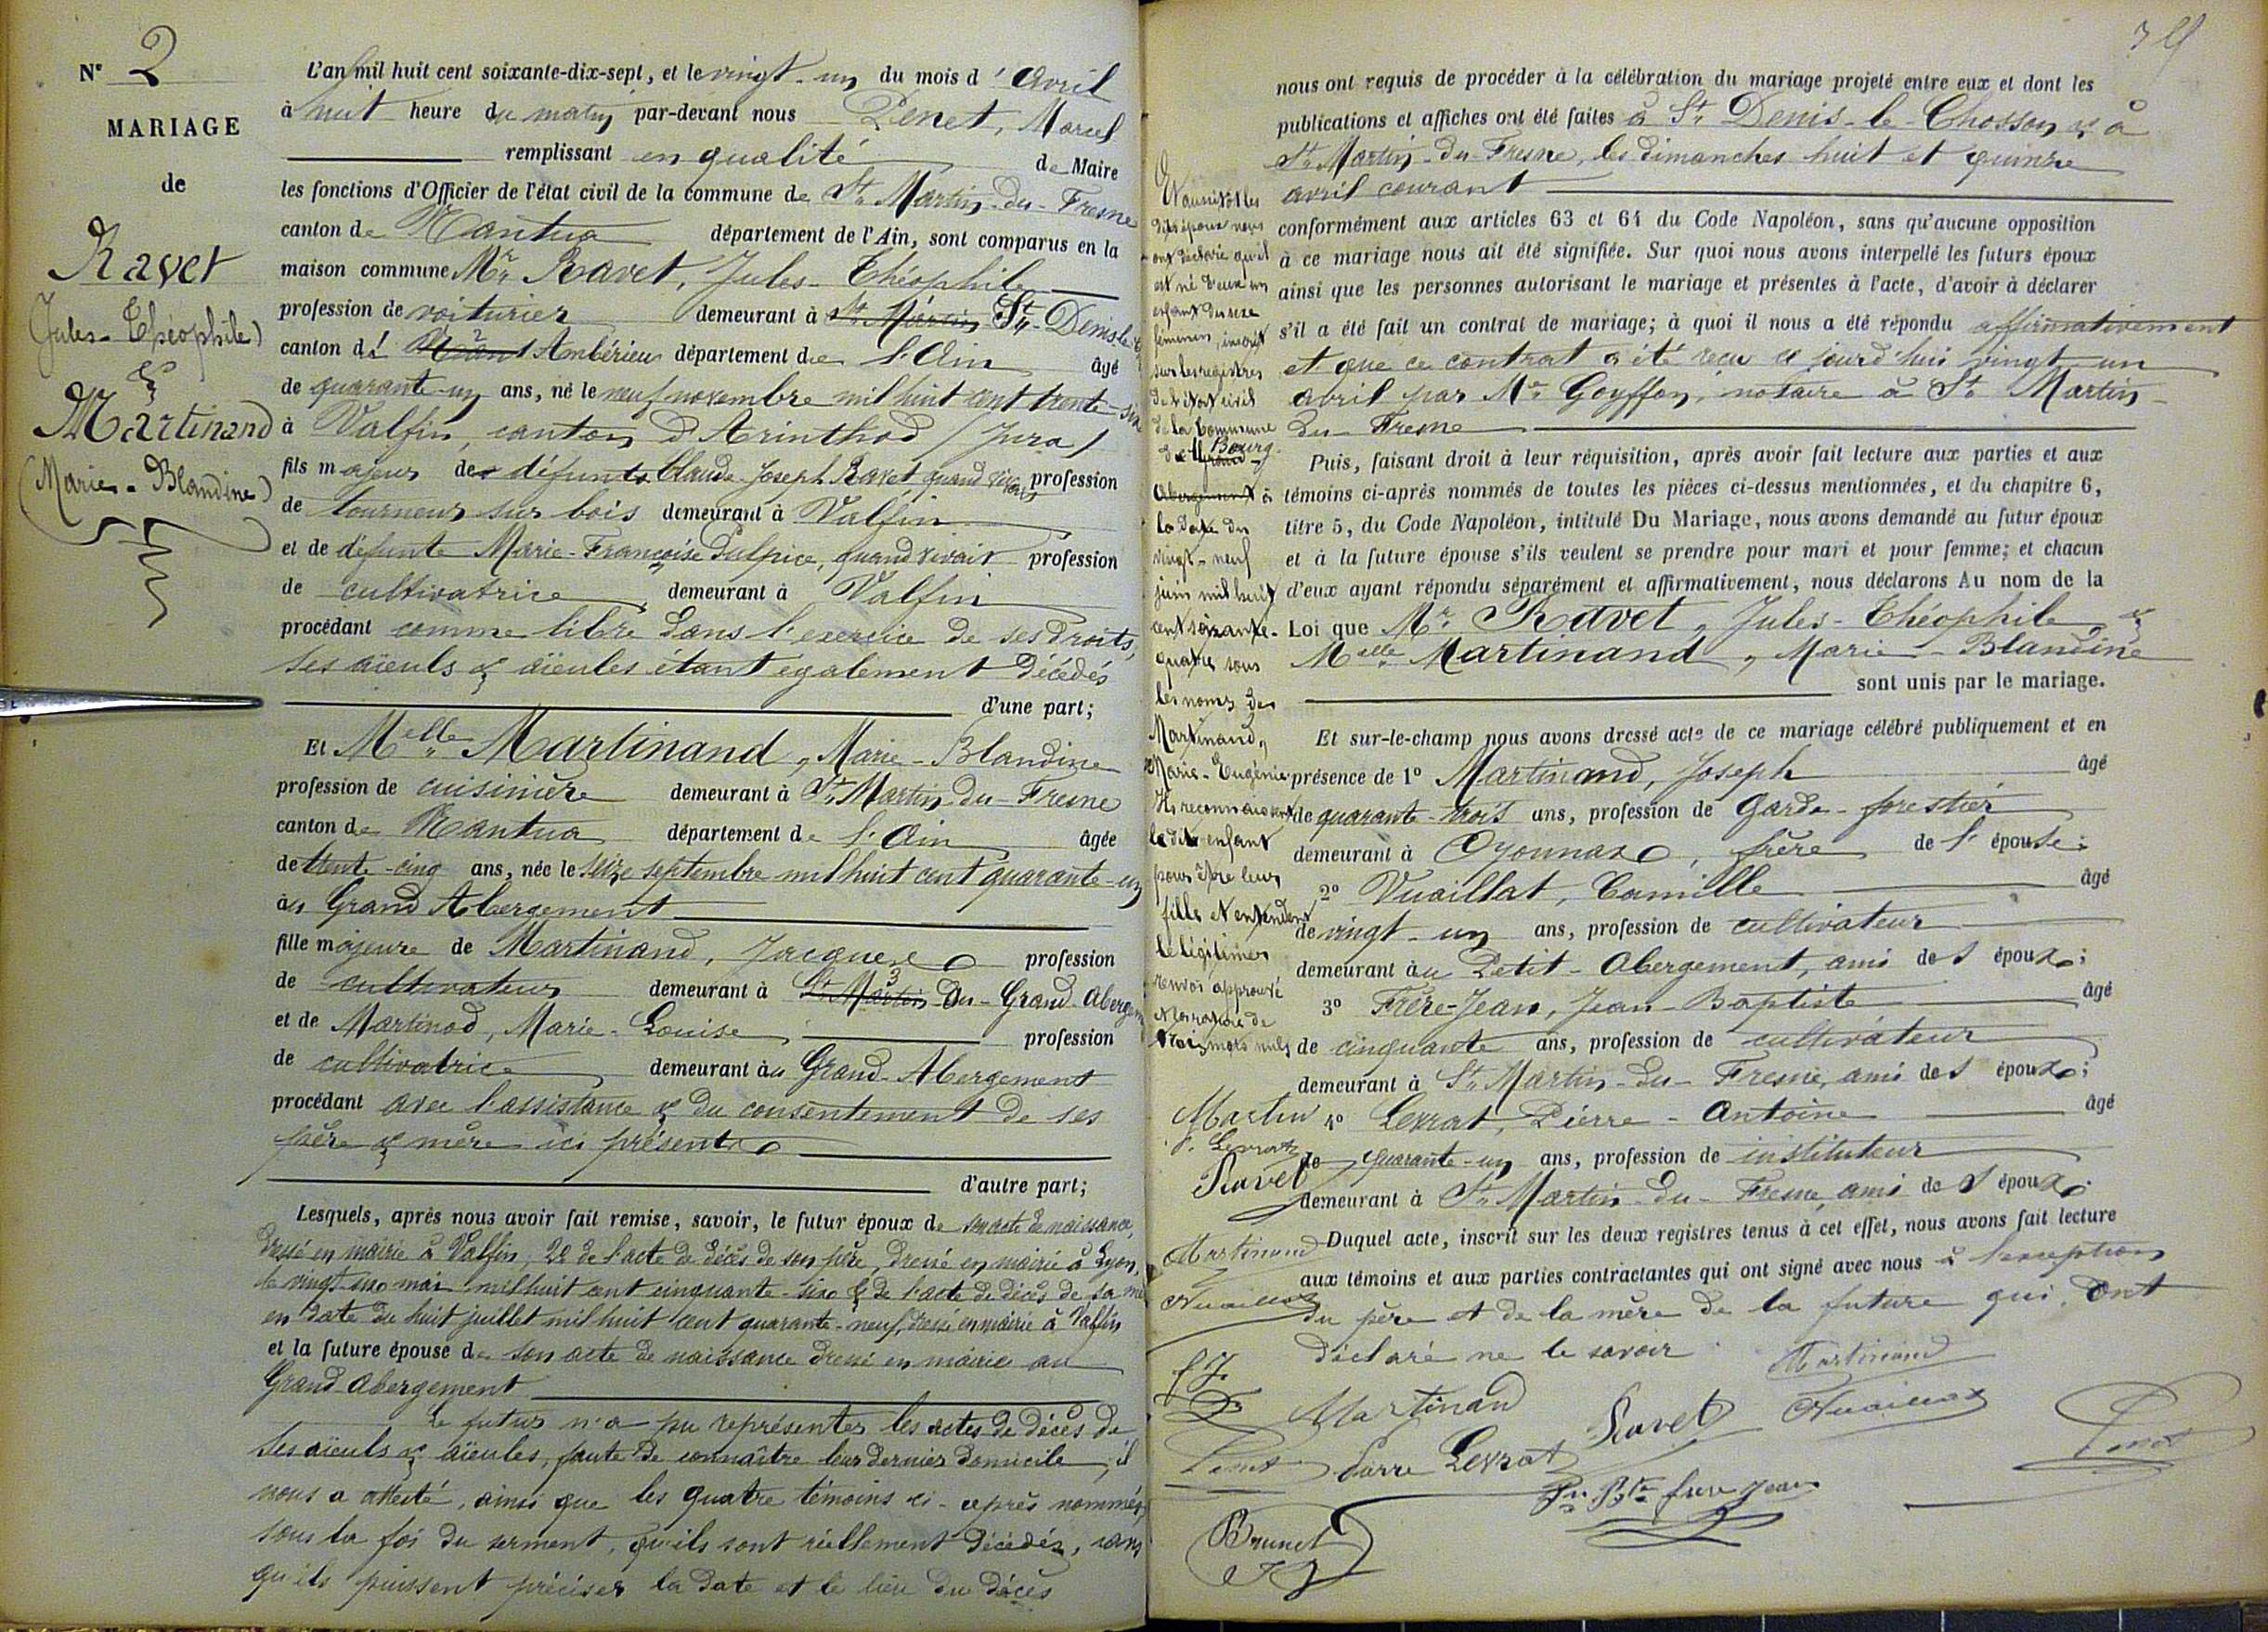 N° 2
MARIAGE
de
Ravet
(Jules-Théophile)
&
Martinand
(Marie-Blandine)
L'an mil huit cent soixante-dix-sept, et le vingt-un du mois d'Avril
à huit heure du matin par-devant nous Penet, Marcel
remplissant en qualité de Maire
les fonctions d'Officier de l'état civil de la commune de St Martin-du-Fresne
canton de Nantua département de l'Ain, sont comparus en la
maison commune Mr Ravet, Jules-Théophile
profession de voiturier demeurant à St Martin St-Denis-le
canton d' Ambérieu département de l'Ain âgé
de quarante-un ans, né le neuf novembre mil huit cent trente-six
à Valfin, canton d'Arinthod (Jura)
fils majeur de défunts Claude-Joseph Ravet quand vivait profession
de tourneur sur bois demeurant à Valfin
et de défunte Marie-Françoise Sulpice, quand vivait profession
de cultivatrice demeurant à Valfin
procédant comme libre dans l'exercice de ses droits,
ses aïeuls & aïeules étant également décédés
d'une part;
Et Melle Martinand, Marie-Blandine
profession de cuisinière demeurant à St Martin-du-Fresne
canton de Nantua département de l'Ain âgée
de trente-cinq ans, née le seize septembre mil huit cent quarante-un
au Grand Abergement
fille majeure de Martinand, Jacques profession
de cultivateur demeurant à St Martin du-Grand-Abergem
et de Martinod, Marie-Louise profession
de cultivatrice demeurant au Grand-Abergement
procédant avec l'assistance & du consentement de ses
père & mère ici présents
d'autre part;
Lesquels, après nous avoir fait remise, savoir, le futur époux de son acte de naissance,
dressé en mairie à Valfin, 2° de l'acte de décès de son père, dressé en mairie à Lyon,
le vingt-six mai mil huit cent cinquante-six & de l'acte de décès de sa mè
en date du huit juillet mil huit cent quarante-neuf, dressé en mairie à Valfin
et la future épouse de son acte de naissance dressé en mairie au
Grand-Abergement
Le futur n'a pu représenter les actes de décès de
ses aïeuls & aïeules, faute de connaître leur dernier domicile, il
nous a attesté, ainsi que les quatre témoins ci-après nommés,
sous la foi du serment, qu'ils sont réellement décédés, sans
qu'ils puissent préciser la date et le lieu du décès
nous ont requis de procéder à la célébration du mariage projeté entre eux et dont les
publications et affiches ont été faites à St Denis-le-Chosson & à
St Martin-du-Fresne, les dimanches huit et quinze
avril courant
conformément aux articles 63 et 64 du Code Napoléon, sans qu'aucune opposition
à ce mariage nous ait été signifiée. Sur quoi nous avons interpellé les futurs époux
ainsi que les personnes autorisant le mariage et présentes à l'acte, d'avoir à déclarer
s'il a été fait un contrat de mariage; à quoi il nous a été répondu affirmativement
et que ce contrat a été reçu ce jourd'hui vingt-un
avril par Me Goyffon, notaire à St Martin-
du-Fresne
Puis, faisant droit à leur réquisition, après avoir fait lecture aux parties et aux
témoins ci-après nommés de toutes les pièces ci-dessus mentionnées, et du chapitre 6,
titre 5, du Code Napoléon, intitulé Du Mariage, nous avons demandé au futur époux
et à la future épouse s'ils veulent se prendre pour mari et pour femme; et chacun
d'eux ayant répondu séparément et affirmativement, nous déclarons Au nom de la
Loi que Mr Ravet, Jules-Théophile, &
Melle Martinand, Marie-Blandine
sont unis par le mariage.
Et sur-le-champ nous avons dressé acte de ce mariage célébré publiquement et en
présence de 1° Martinand, Joseph âgé
de quarante-trois ans, profession de Garde-forestier
demeurant à Oyonnax, frère de l'épouse;
2° Vuaillat, Camille âgé
de vingt-un ans, profession de cultivateur
demeurant au Petit-Abergement, ami des époux;
3° Frère-Jean, Jean-Baptiste âgé
de cinquante ans, profession de cultivateur
demeurant à St Martin-du-Fresne, ami des époux;
4° Levrat, Pierre-Antoine âgé
de quarante-un ans, profession de instituteur
demeurant à St Martin-du-Fresne, ami des époux.
Duquel acte, inscrit sur les deux registres tenus à cet effet, nous avons fait lecture
aux témoins et aux parties contractantes qui ont signé avec nous à l'exception
du père et de la mère de la future qui ont
déclaré ne le savoir
Martinand
Martinand
Ravet
Vuaillat
Penet
Pierre Levrat
Jn Bte frere jean
Et aussitôt les
dits époux nous
ont déclaré qu'il
est né d'eux un
enfant du sexe
féminin, inscrit
sur les registres
de l'état civil
de la Commune
de Bourg
Grand-
Abergement à
la date du
vingt-neuf
juin mil huit
cent soixante-
quatre sous
les noms de
Martinand,
Marie-Eugénie
Ils reconnaissent
le dit enfant
pour être leur
fille et entendent
le légitimer
renvoi approuvé
et la rature de
trois mots nuls
Martin
P. Levrat
Ravet
Martinand
Vuaillat
f J
Penet
Brunet